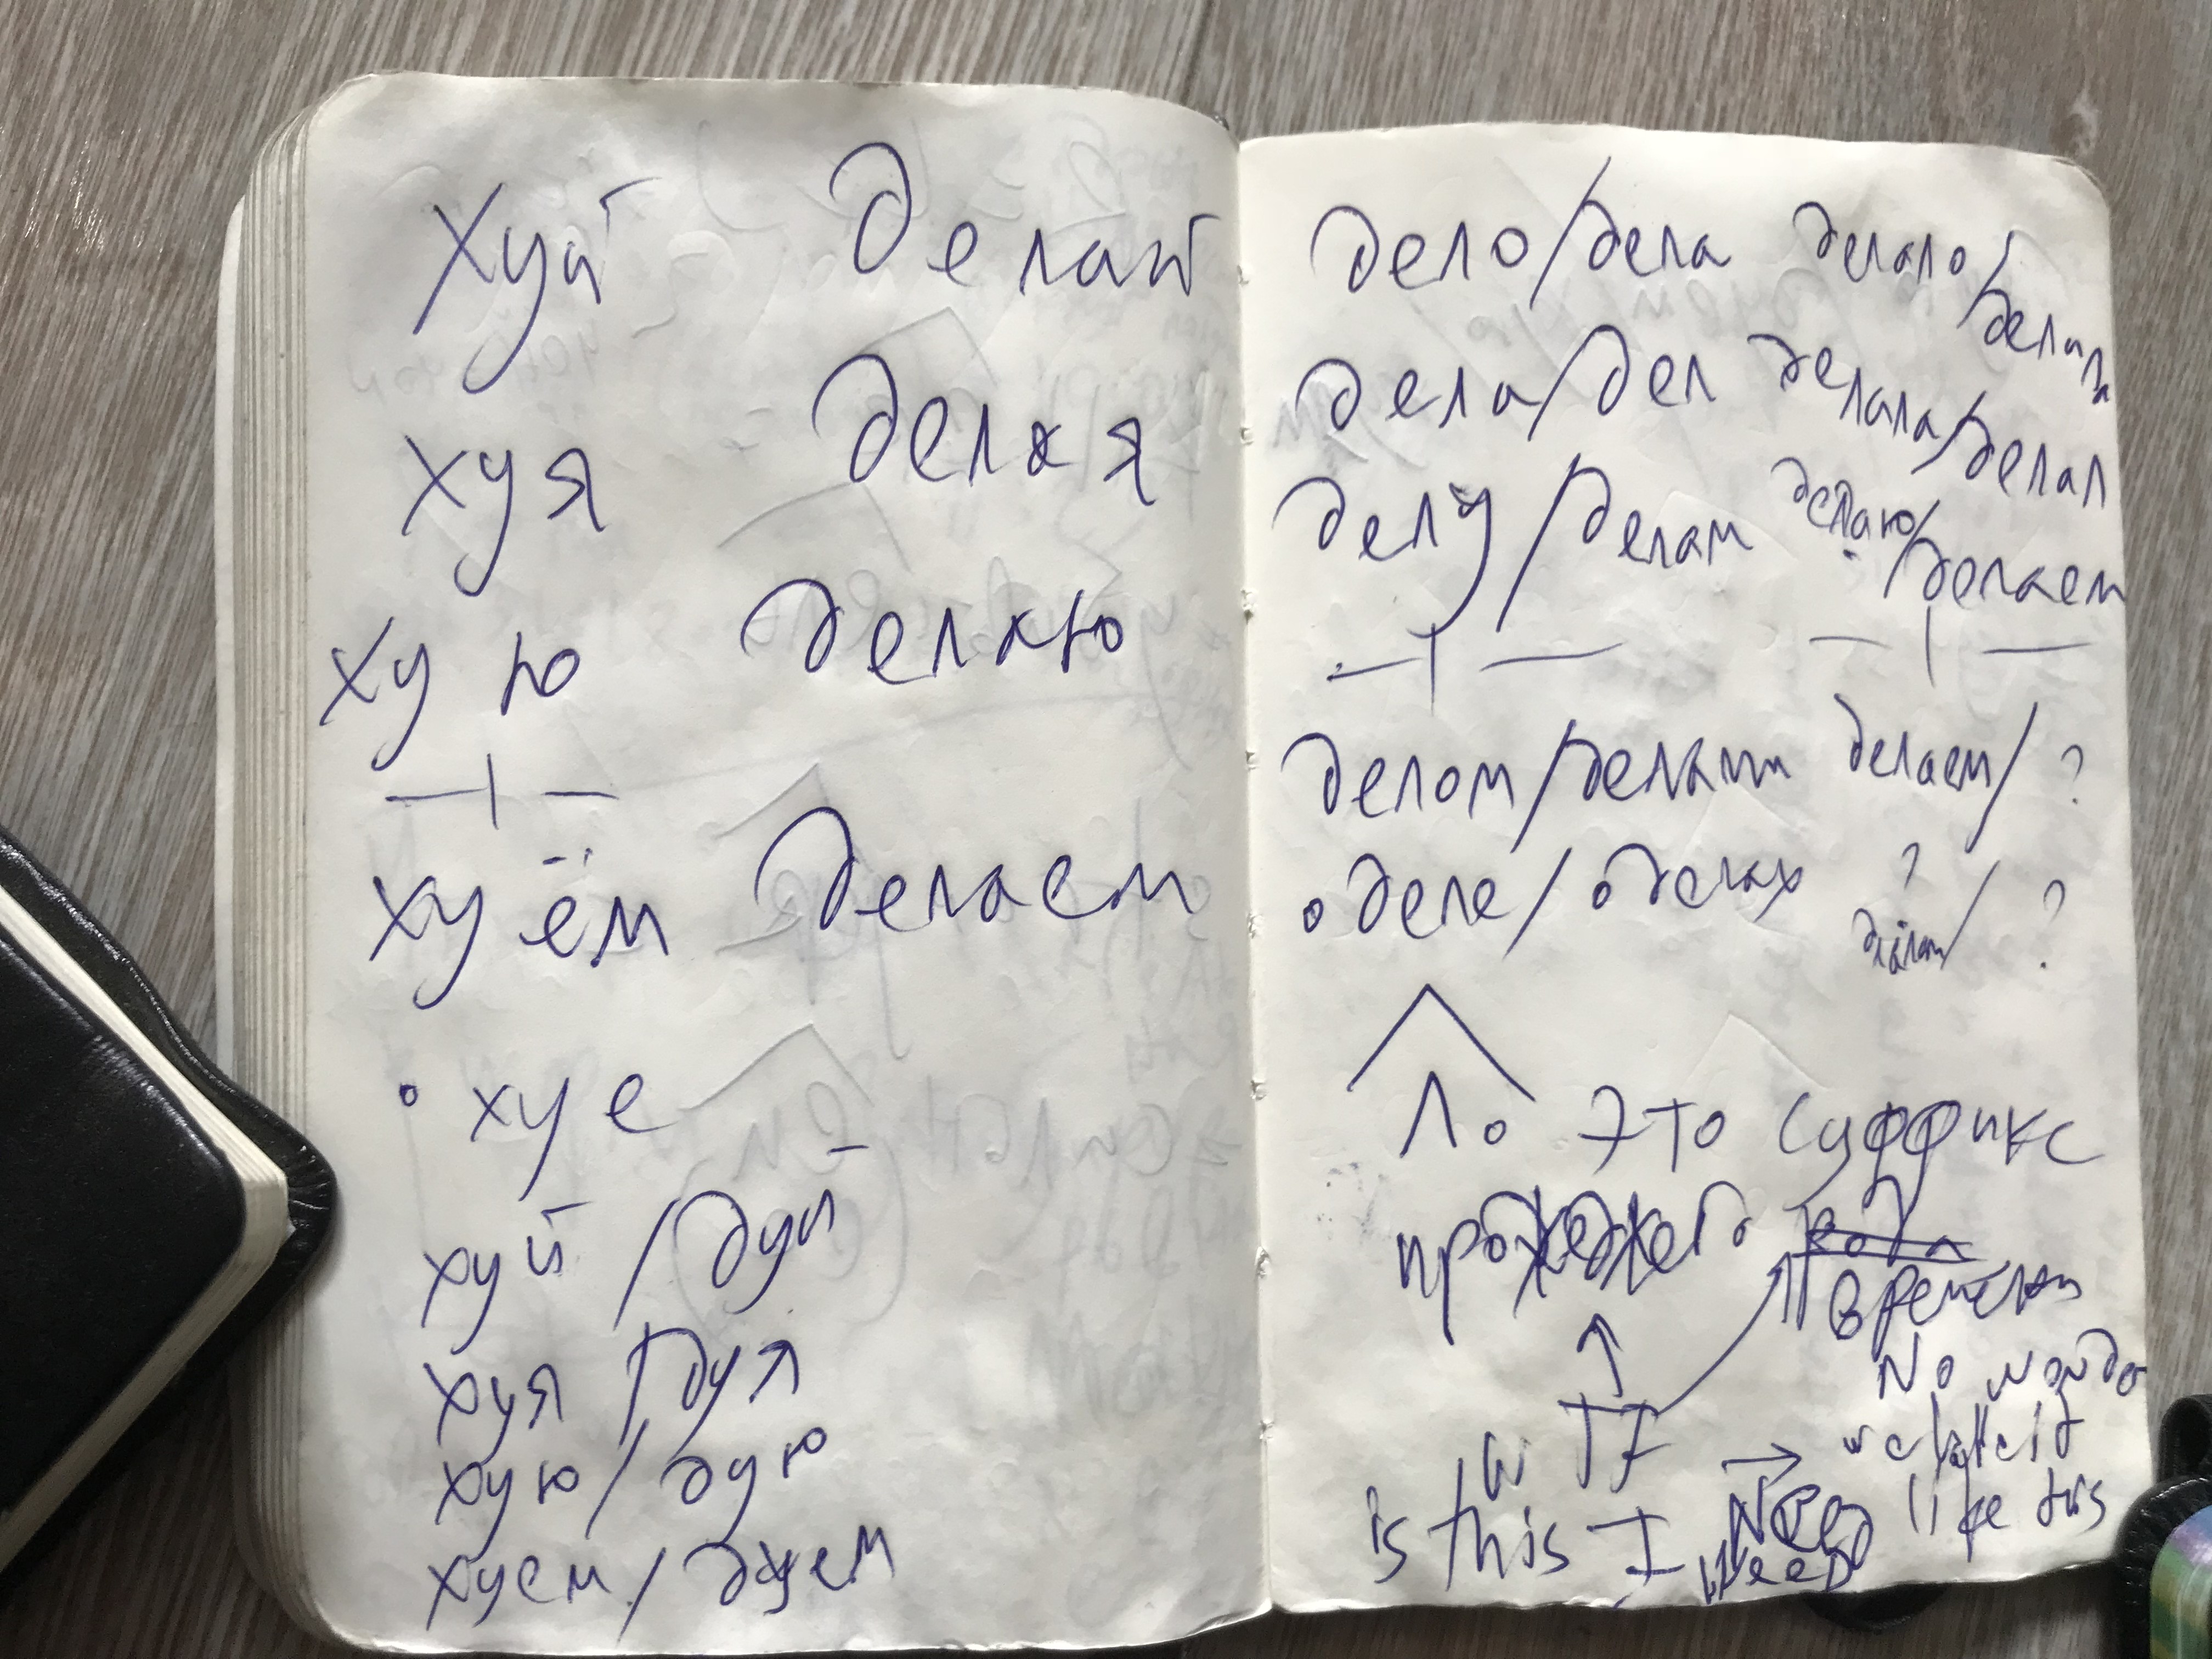 хуй делай
хуя делая
хую делаю
хуём делаем
о хуе
хуй / дуй
хуя / дуя
хую / дую
хуем / дуем
дело/дела делало/
дела/дел делала/делал
делу/делам делаю/делаем
делом/делам делает/?
о деле/о делах ? /?
Ло это суффикс
прошедшего
времени
но надо
исключить
is this I Need like this